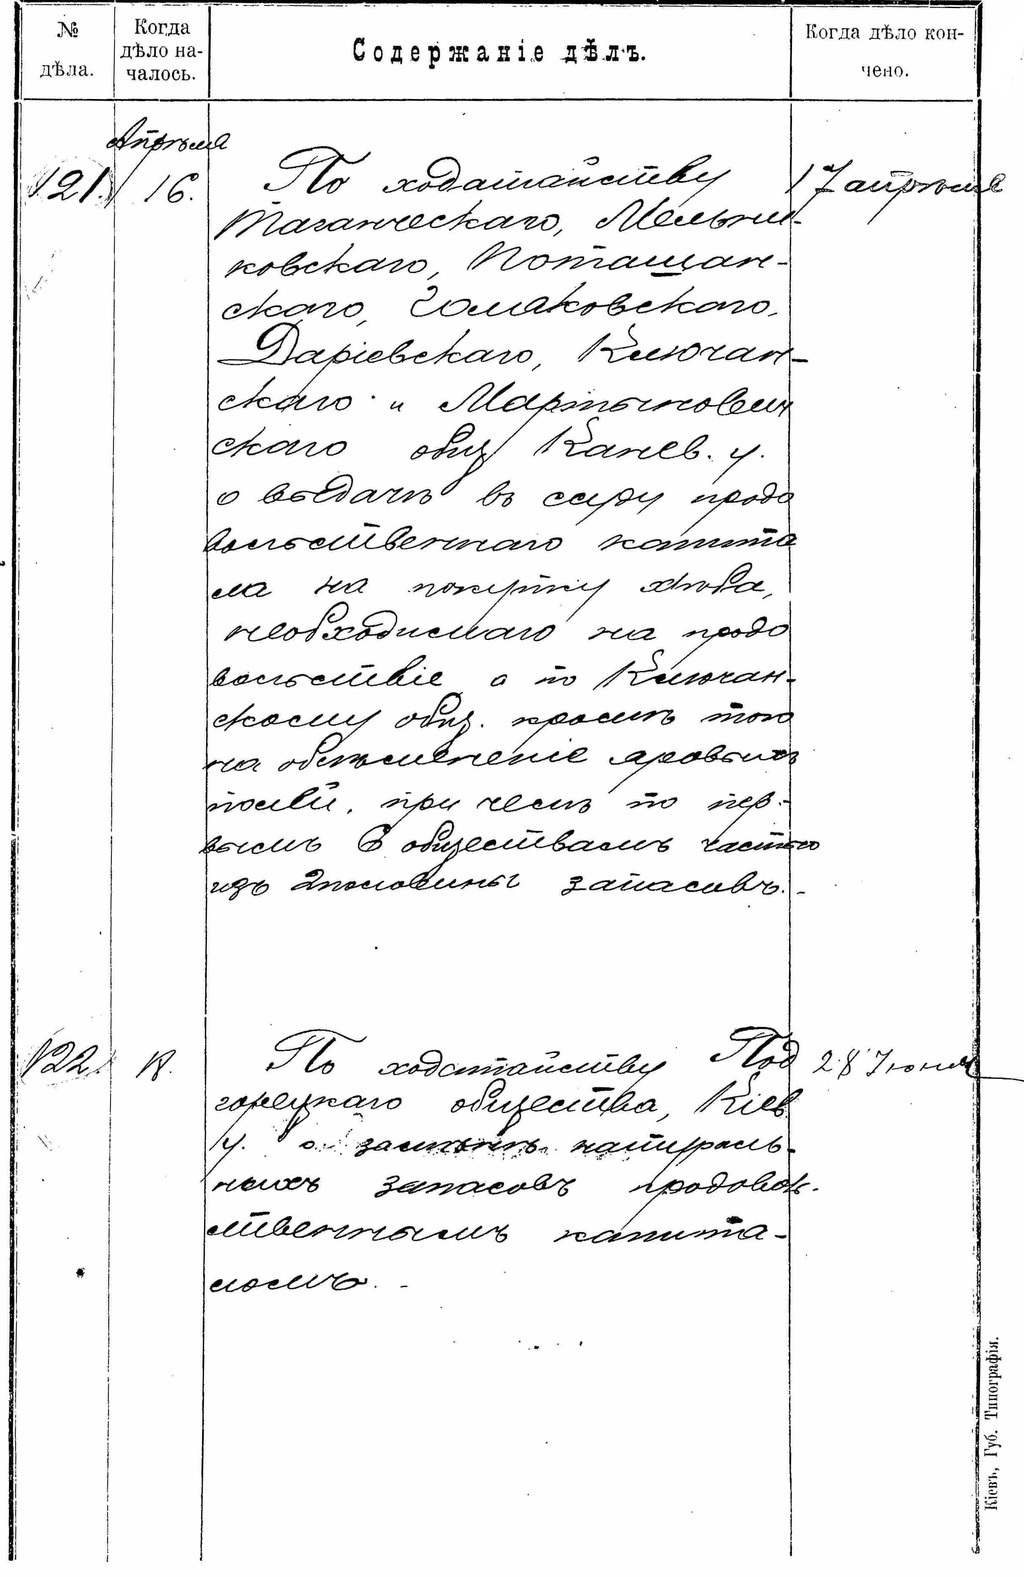 № дѣла.
Когда дѣло на-
чалось.
Содержаніе дѣлъ.
Когда дѣло кон-
чено.
Апрѣля
121. 16. По ходатайству 17 апрѣля
Таганческаго, Мельни-
ковскаго, Поташан-
скаго,
Даріевскаго, Ключан-
скаго и Мартынович
скаго общ Канев. у.
о выдачѣ въ ссуду продо
вольственнаго капита
ла на покупку хлѣба,
необходимаго на продо
вольствіе а по Ключан-
скому общ. кромѣ того
на обсѣмененіе яровыхъ
полей, при чемъ по пер-
вымъ 6 обществамъ частью
изъ 2 половины запасовъ.-
122. 18. По ходатайству Под 28 Іюня
горецкаго общества, Кіев
у. о замѣнѣ натураль-
ныхъ запасовъ продоволь.
ственнымъ капита-
ломъ. -
Кіевъ, Губ. Типографія.